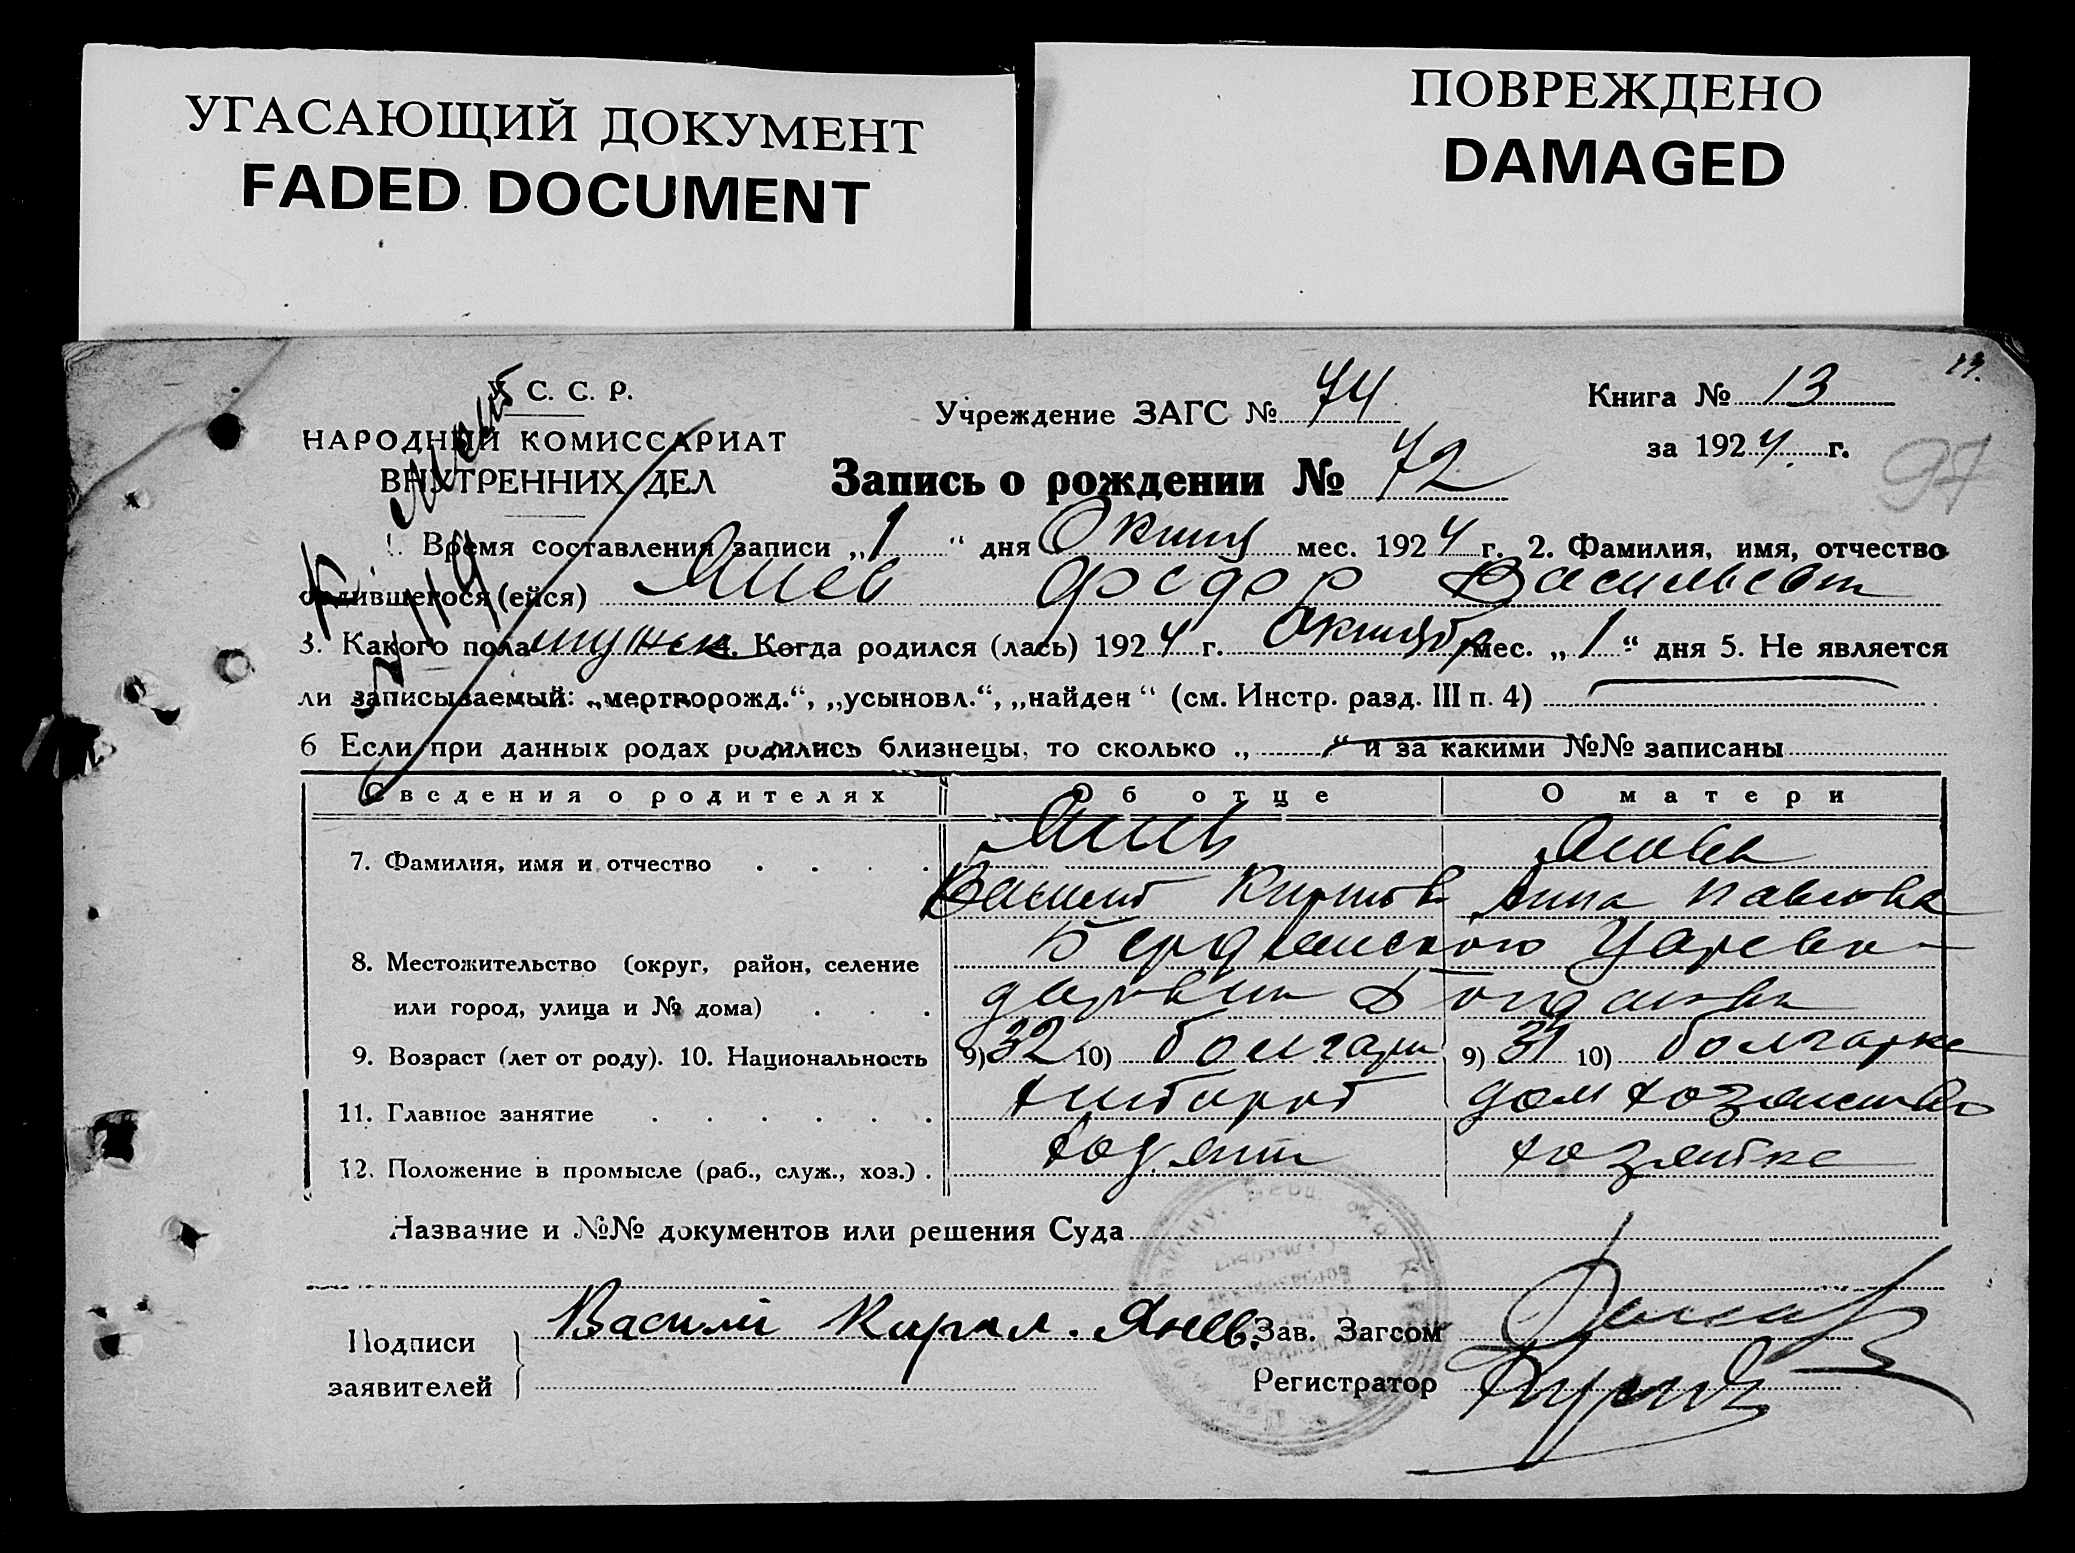 УГАСАЮЩИЙ ДОКУМЕНТ
FADED DOCUMENT
ПОВРЕЖДЕНО
DAMAGED
С. С. Р.
НАРОДНЫЙ КОМИССАРИАТ
ВНУТРЕННИХ ДЕЛ
Учреждение ЗАГС № 74
Книга № 13
за 1924 г.
97
Запись о рождении № 72
1. Время составления записи „1“ дня мес. 1924 г. 2. Фамилия, имя, отчество
родившегося (ейся) Янев Федор Васильевич
3. Какого пола мужск 4. Когда родился (лась) 1924 г. Октябр мес. „1“ дня 5. Не является
ли записываемый: „мертворожд.“, „усыновл.“, „найден“ (см. Инстр. разд. III п. 4)
6 Если при данных родах родились близнецы, то сколько „ “ и за какими №№ записаны
Сведения о родителях Об отце О матери
7. Фамилия, имя и отчество Янев Янова
Василий Кирилов Анна Павлова
8. Местожительство (округ, район, селение Бердянского Царево-
или город, улица и № дома) Богдановка
9. Возраст (лет от роду). 10. Национальность 9) 32 10) болгарин 9) 31 10) болгарка
11. Главное занятие хлебороб дом хозяйство
12. Положение в промысле (раб., служ., хоз.) хозяин хозяйка
Название и №№ документов или решения Суда
Подписи
заявителей
Василий Кирил. Янев.
Зав. Загсом
Регистратор